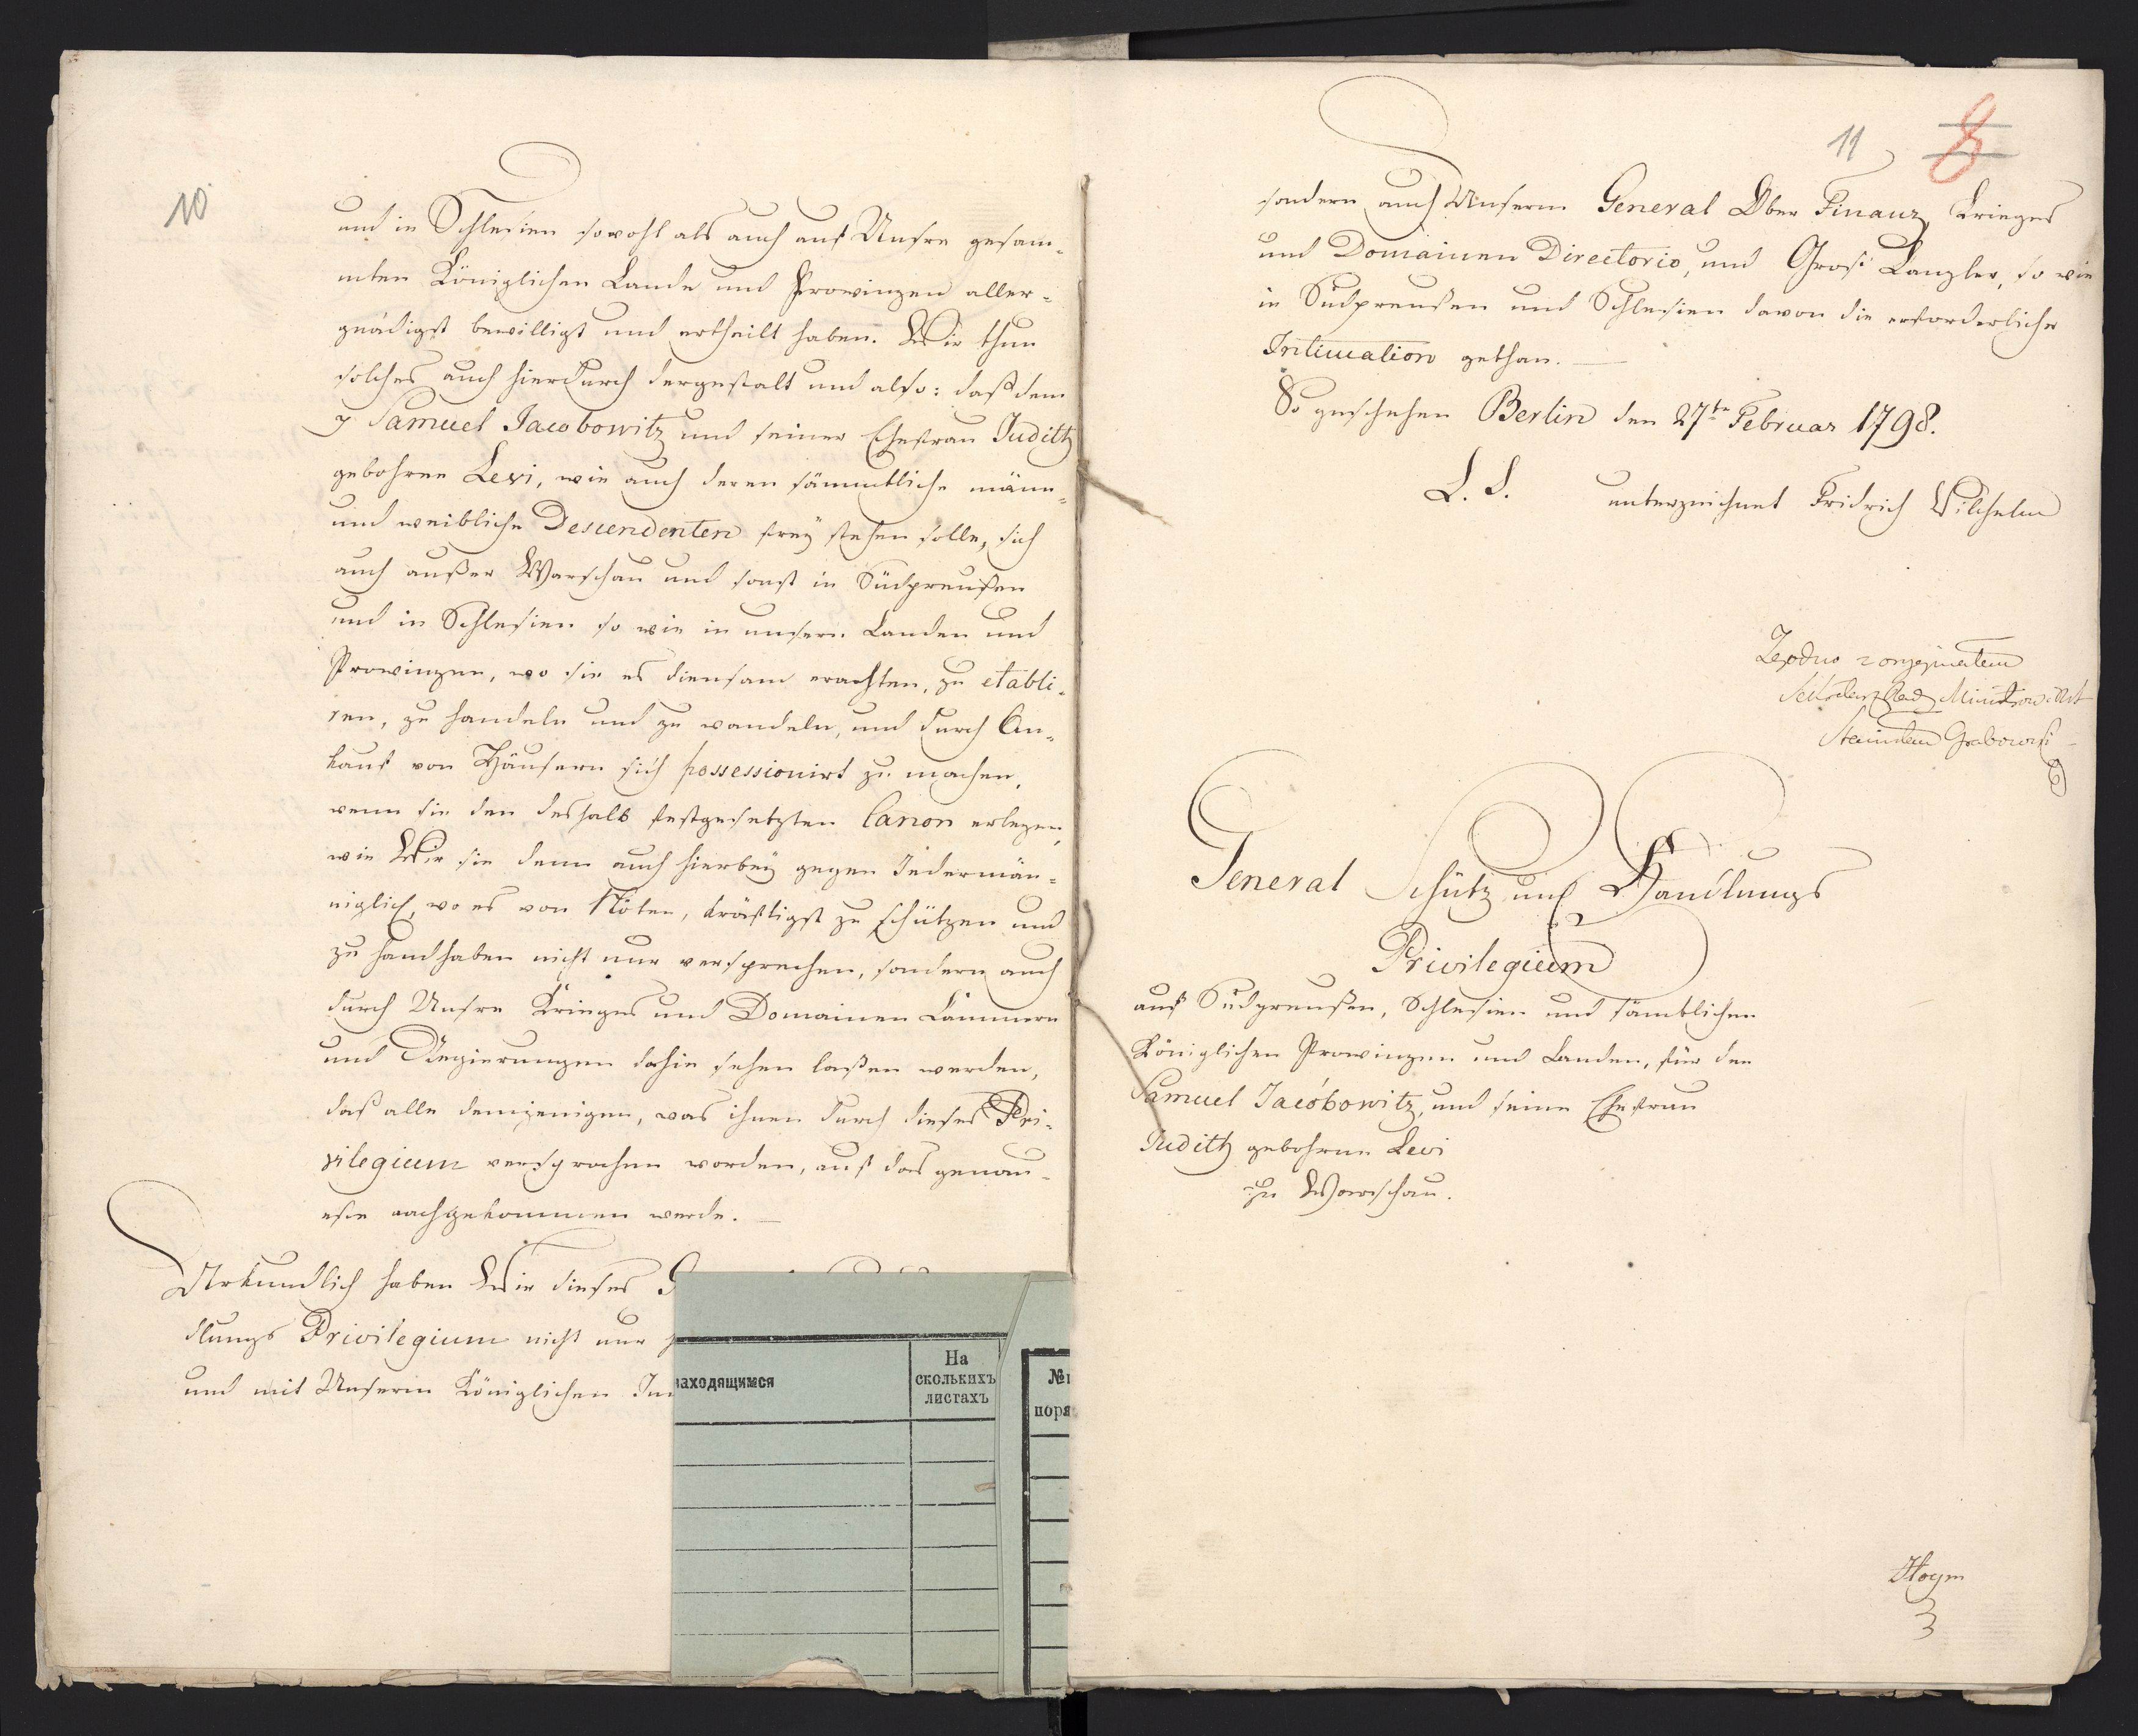 10
und in Schlesien sowohl als auch auf Unsre gesam-
mten Königlichen Lande und Prowinzen aller-
gnädigst bewilligt und ertheilt haben. Wir thun
solches auch hierdurch dergestalt und also: daß dem
Samuel Jacobowitz und seiner Ehefrau Judith
gebohrne Levi, wie auch deren sämmtliche männ-
und weibliche Descendenten frey stehen solle, sich
auch außer Warschau und sonst in Südpreußen
und in Schlesien so wie in unsern Landen und
Prowinzen, wo sie es diensam erachten, zu etabli-
ren, zu handeln und zu wandeln, und durch An-
kauf von Häusern sich possessionirt zu machen,
wenn sie den deshalb festgesetzten Canon erlegen,
wie Wir sie denn auch hierbey gegen Jedermän-
niglich, wo es von Nöten, kräftigst zu schützen und
zu handhaben nicht nur versprechen, sondern auch
durch Unsre Krieges und Domainen Cammern
und Regierungen dahin sehen laßen werden,
daß alle demjenigen, was ihnen durch dieses Pri-
vilegium versprochen worden, auf das genau-
este nachgekommen werde.
Urkundlich haben Wir dieses
dlungs Privilegium nicht nur
und mit Unserm Königlichen
находящимся
На
сколькихъ
листахъ
№
поря
11 8
sondern auch Unserm General Ober Finanz, Krieges
und Domainen Directorio, und Groß Canzler, so wie
in Südpreußen und Schlesien davon die erforderliche
Intimation gethan.
So geschehen Berlin den 27ten Februar 1798.
L. S. unterzeichnet Fridrich Wilhelm
Zgodno z orygynałem
Sekretarz
Grabowski
General Schutz und Handlungs
Privilegium
auf Südpreußen, Schlesien und sämtlichen
Königlichen Prowinzen und Landen, für den
Samuel Jacobowitz, und seine Ehefrau
Judith gebohrne Levi
zu Warschau.
Hoym